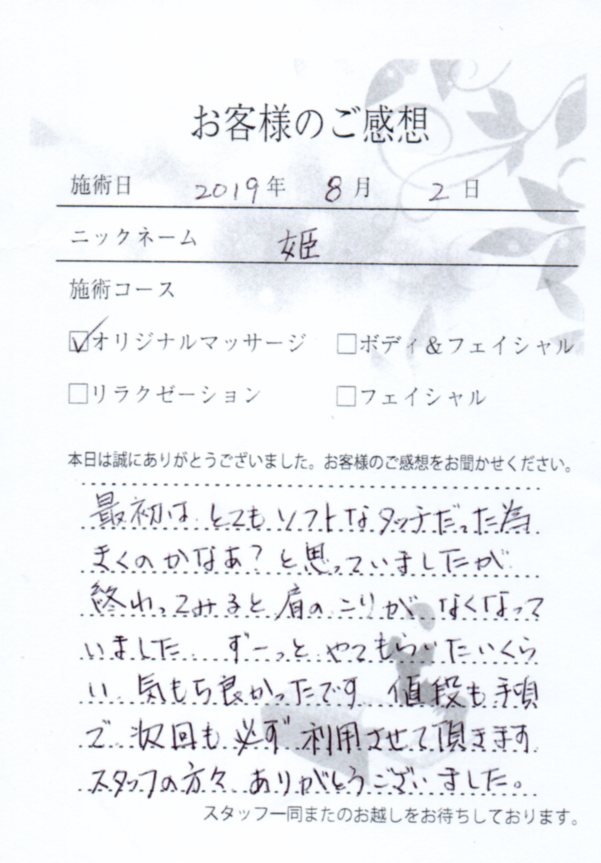 お客様のご感想
施術日 2019年 8月 2日
ニックネーム 姫
施術コース
☑オリジナルマッサージ □ボディ＆フェイシャル
□リラクゼーション □フェイシャル
本日は誠にありがとうございました。お客様のご感想をお聞かせください。
最初は とてもソフトなタッチだった為
きくのかなあ？と思っていましたが
終わってみると肩のこりが なくなって
いました ずーっと やてもらいたいくら
い 気もち良かったです 値段も手頃
で 次回も必ず利用させて頂きます
スタッフの方々 ありがとうございました。
スタッフ一同またのお越しをお待ちしております。